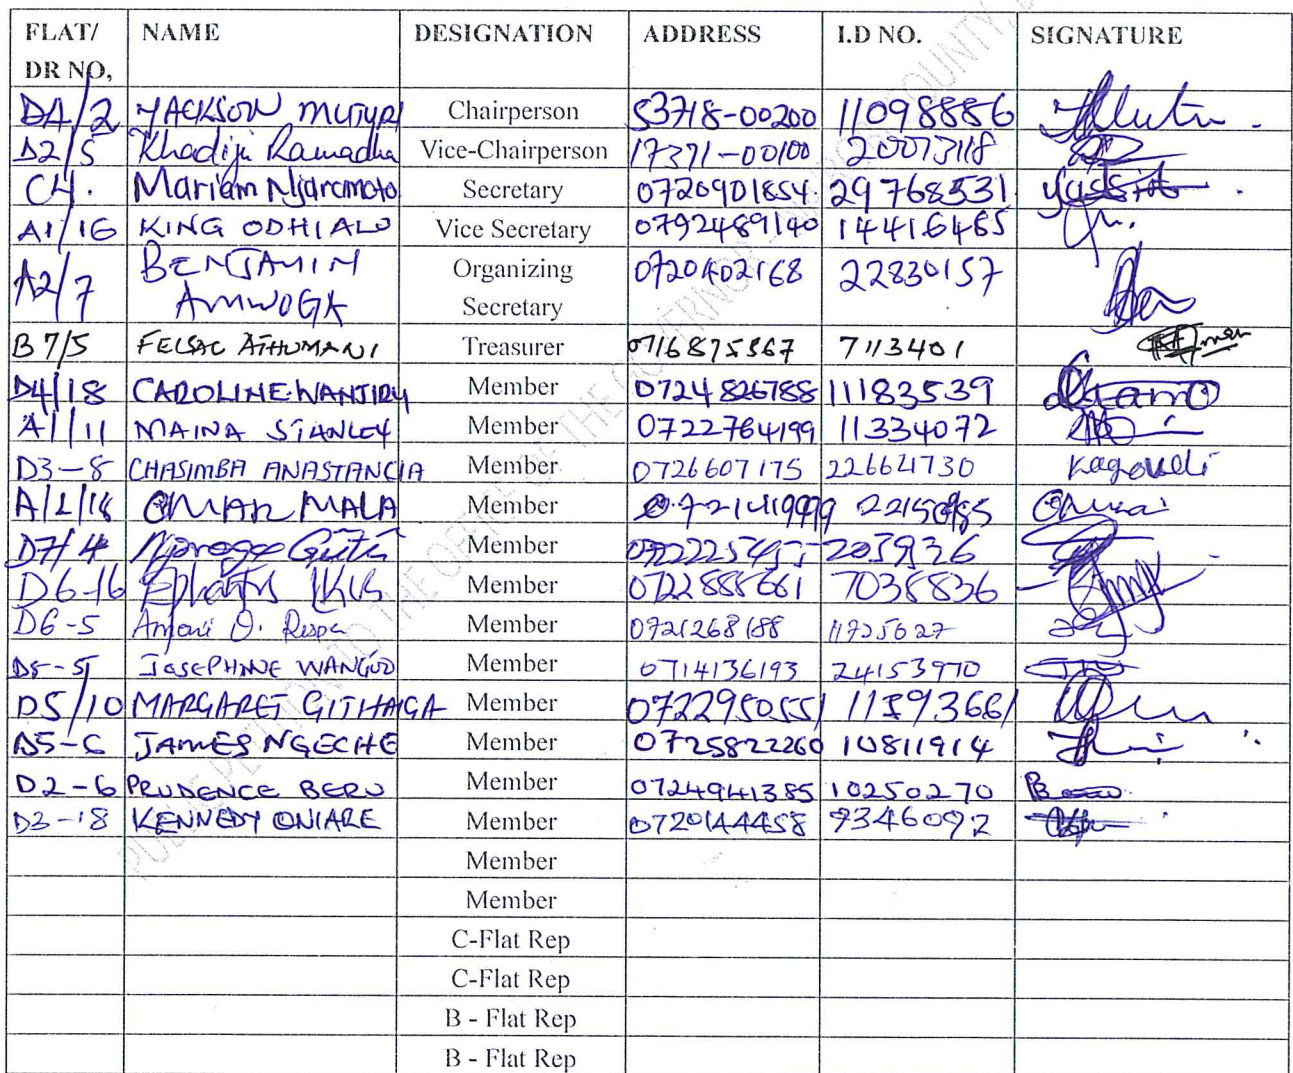 FLAT/ NAME DESIGNATION ADDRESS I.D NO. SIGNATURE
DR NO,
D4/2 JACKSON MUTURI Chairperson 53718-00200 11098886
D2/5 Khadija Ramadha Vice-Chairperson 17371-00100 20073118
C4. Mariam Njaramoto Secretary 0720901854 29768531
A1/16 KING ODHIALO Vice Secretary 0792489140 14416465
A2/7 BENJAMIN Organizing 0720402168 22830157
AMWOGA Secretary
B7/5 FELSAC ATHUMANI Treasurer 0716875367 7113401
D4/18 CAROLINE WANJIRU Member 0724826788 11183539
A1/11 MAINA STANLEY Member 0722764199 11334072
D3-8 CHASIMBA ANASTANCIA Member 0726607175 22664730
A/1/16 OMAR MALA Member
D7/4 Njoroge Member
D6-16 Member 0722888661 7038836
D6-5 Member 0721268188 11925627
D5-5 JOSEPHINE WANGUO Member 0714136193 24153970
D5/10 MARGARET GITHAIGA Member 0722950551 11593681
D5-6 JAMES NGECHE Member 0725822260 10811914
D2-6 PRUDENCE BERO Member 0724941385 10250270
D3-18 KENNEDY ONIARE Member 0720144458 9346092
Member
Member
C-Flat Rep
C-Flat Rep
B - Flat Rep
B - Flat Rep